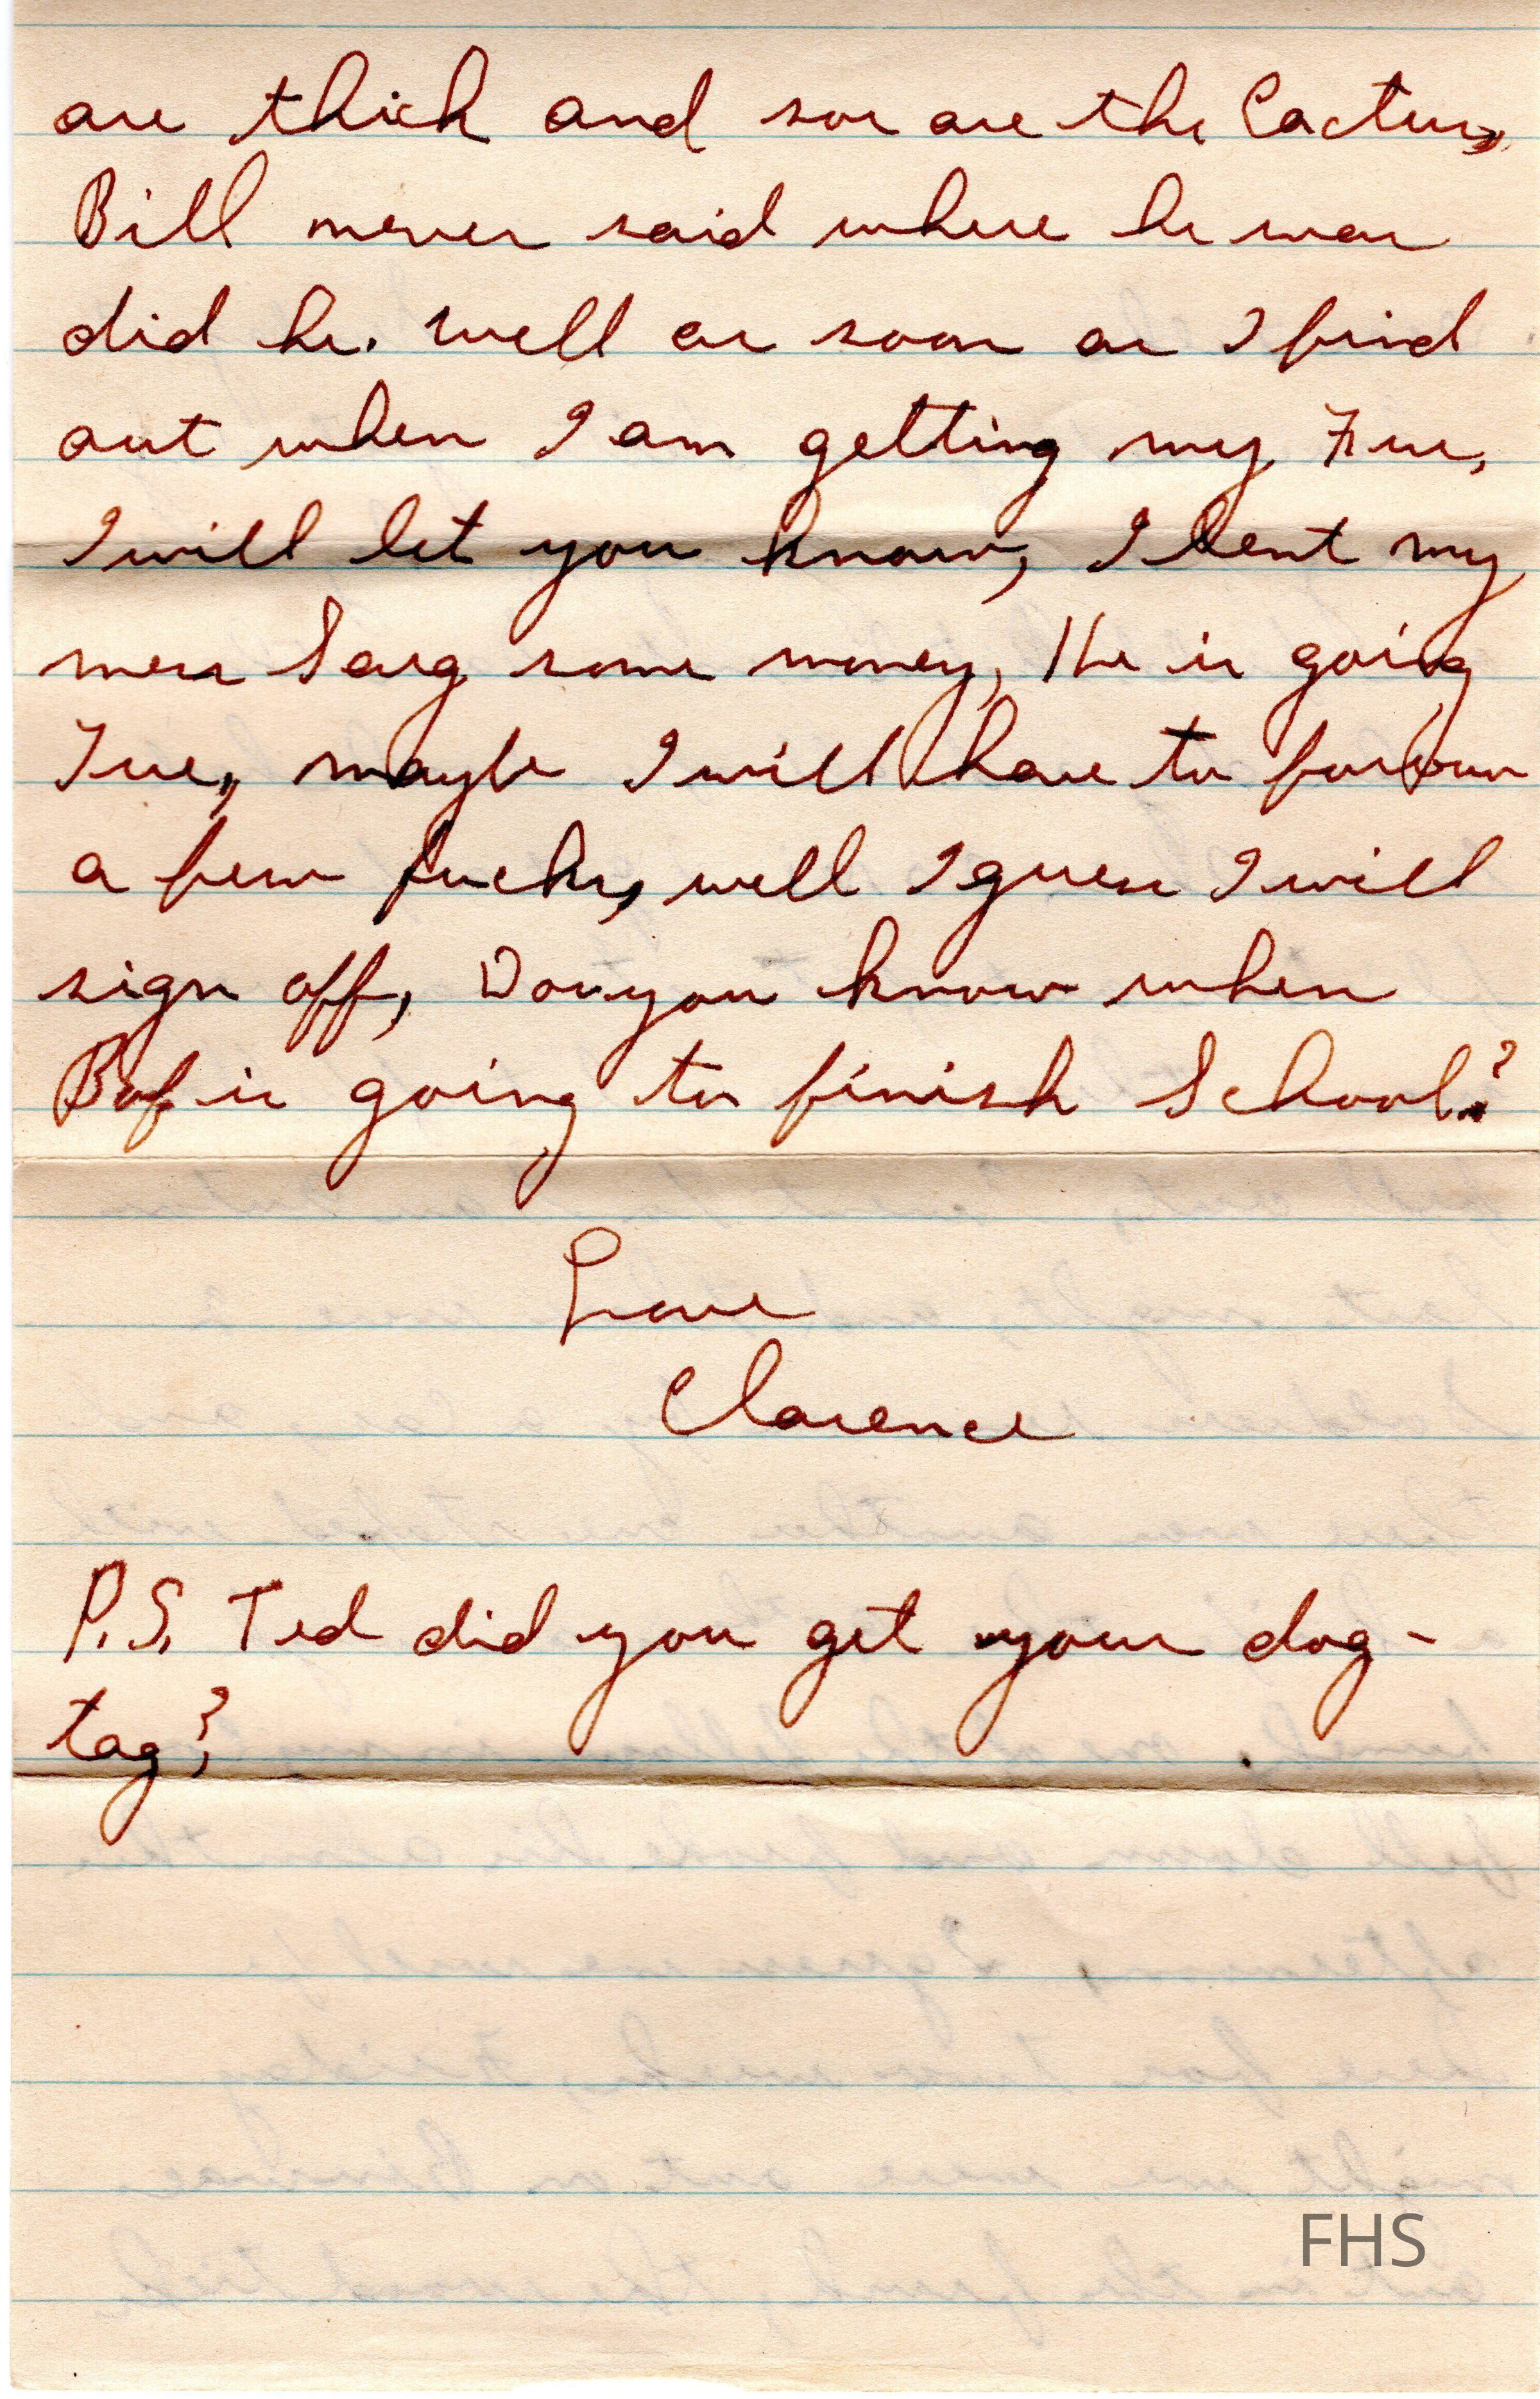 are thick and so are the Cactus,
Bill never said where he was
did he. well as soon as I find
out when I am getting my Fur,
I will let you know, I lent my
mess Sarg some money, He is going
Tue, maybe I will have to borrow
a few bucks, well I guess I will
sign off, Do you know when
Bob is going to finish School?
Love
Clarence
P.S. Ted did you get your dog-
tag?
FHS